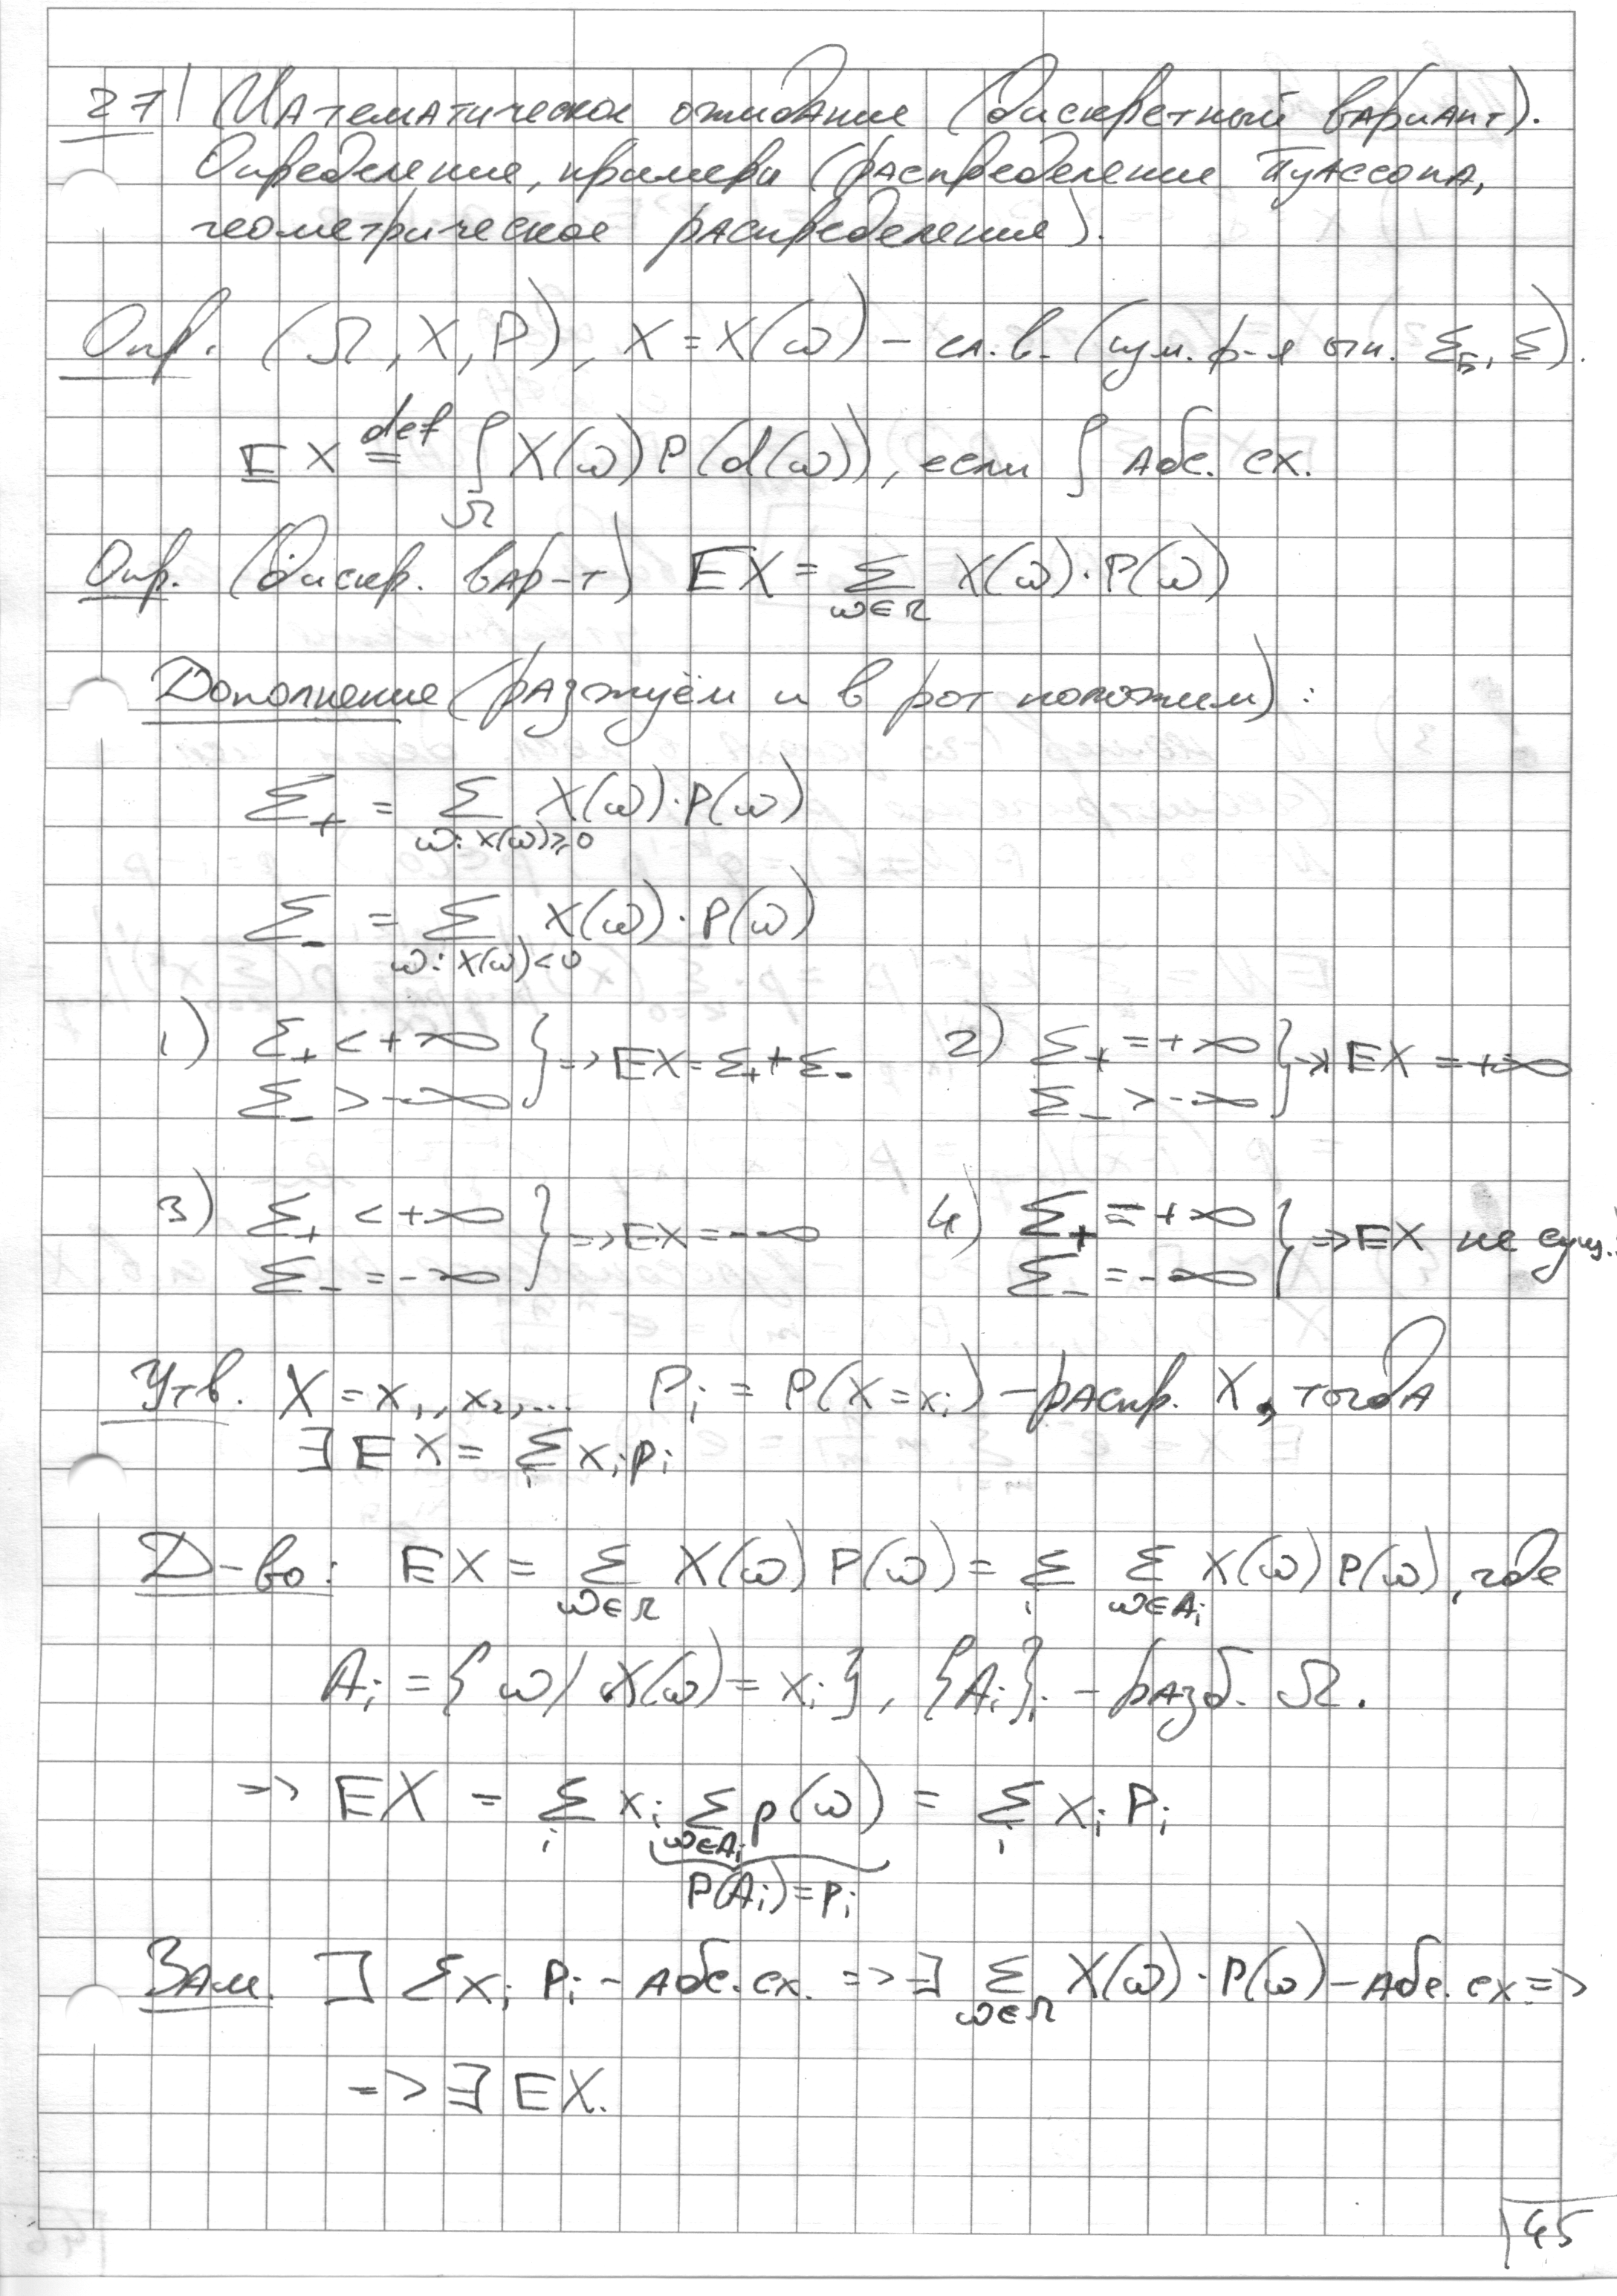 27| Математическое ожидание (дискретный вариант).
Определение, примеры (распределение Пуассона,
геометрическое распределение).
Опр. (Ω, X, P), X = X(ω) – сл. в. (изм. ф-я отн. Σ_Б, Σ).
EX def= ∫_Ω X(ω) P(d(ω)), если ∫ абс. сх.
Опр. (дискр. вар-т) EX = Σ_{ω∈Ω} X(ω)·P(ω)
Дополнение (разжуём и в рот положим):
Σ₊ = Σ_{ω: X(ω)⩾0} X(ω)·P(ω)
Σ₋ = Σ_{ω: X(ω)<0} X(ω)·P(ω)
1) Σ₊ < +∞, Σ₋ > -∞ } => EX = Σ₊ + Σ₋ 2) Σ₊ = +∞, Σ₋ > -∞ } => EX = +∞
3) Σ₊ < +∞, Σ₋ = -∞ } => EX = -∞ 4) Σ₊ = +∞, Σ₋ = -∞ } => EX не сущ.
Утв. X = x₁, x₂, ... P_i = P(X = x_i) – распр. X, тогда
∃ EX = Σ_i x_i p_i
Д-во: EX = Σ_{ω∈Ω} X(ω) P(ω) = Σ_i Σ_{ω∈A_i} X(ω) P(ω), где
A_i = {ω | X(ω) = x_i}, {A_i}_i – разб. Ω.
=> EX = Σ_i x_i Σ_{ω∈A_i} p(ω) = Σ_i x_i P_i
P(A_i) = p_i
Зам. ∃ Σ x_i P_i – абс. сх. => ∃ Σ_{ω∈Ω} X(ω)·P(ω) – абс. сх =>
=> ∃ EX.
45